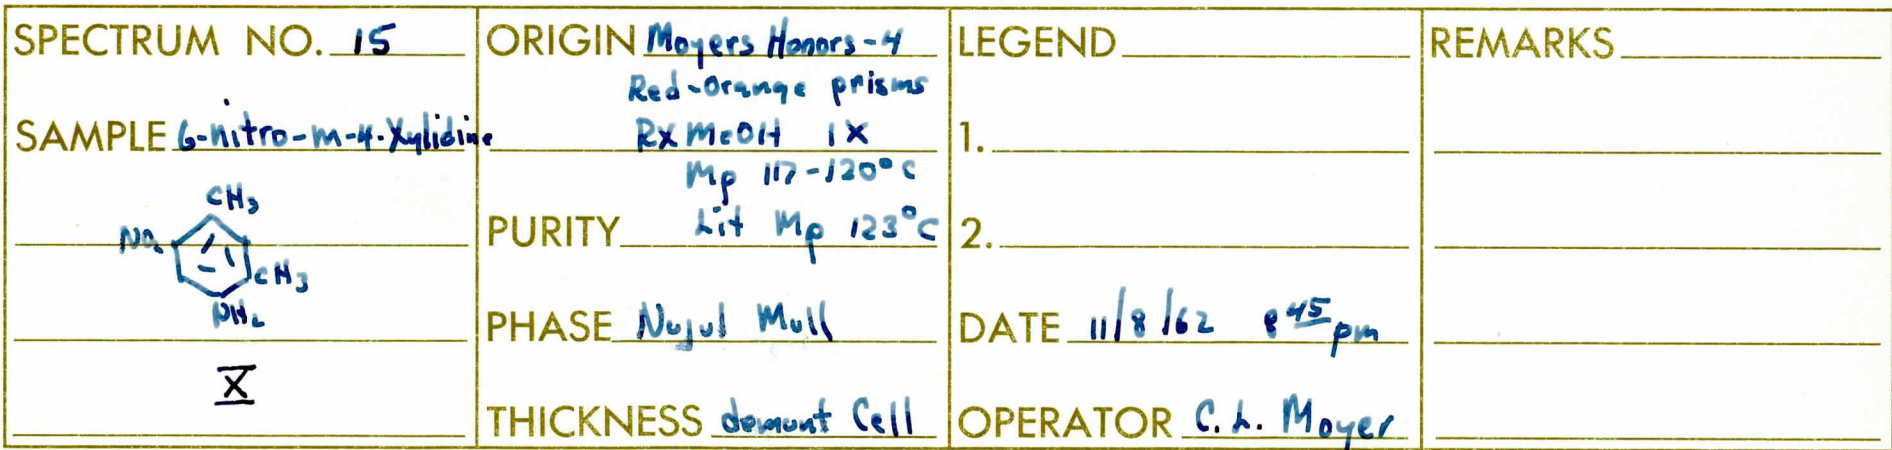 SPECTRUM NO. 15
SAMPLE 6-nitro-m-4-Xylidine
CH3
NO2
CH3
NH2
X
ORIGIN Moyers Honors-4
Red-Orange prisms
Rx MeOH 1X
Mp 117-120°C
PURITY Lit Mp 123°C
PHASE Nujul Mull
THICKNESS demount Cell
LEGEND
1.
2.
DATE 11/8/62 8 45 pm
OPERATOR C. L. Moyer
REMARKS